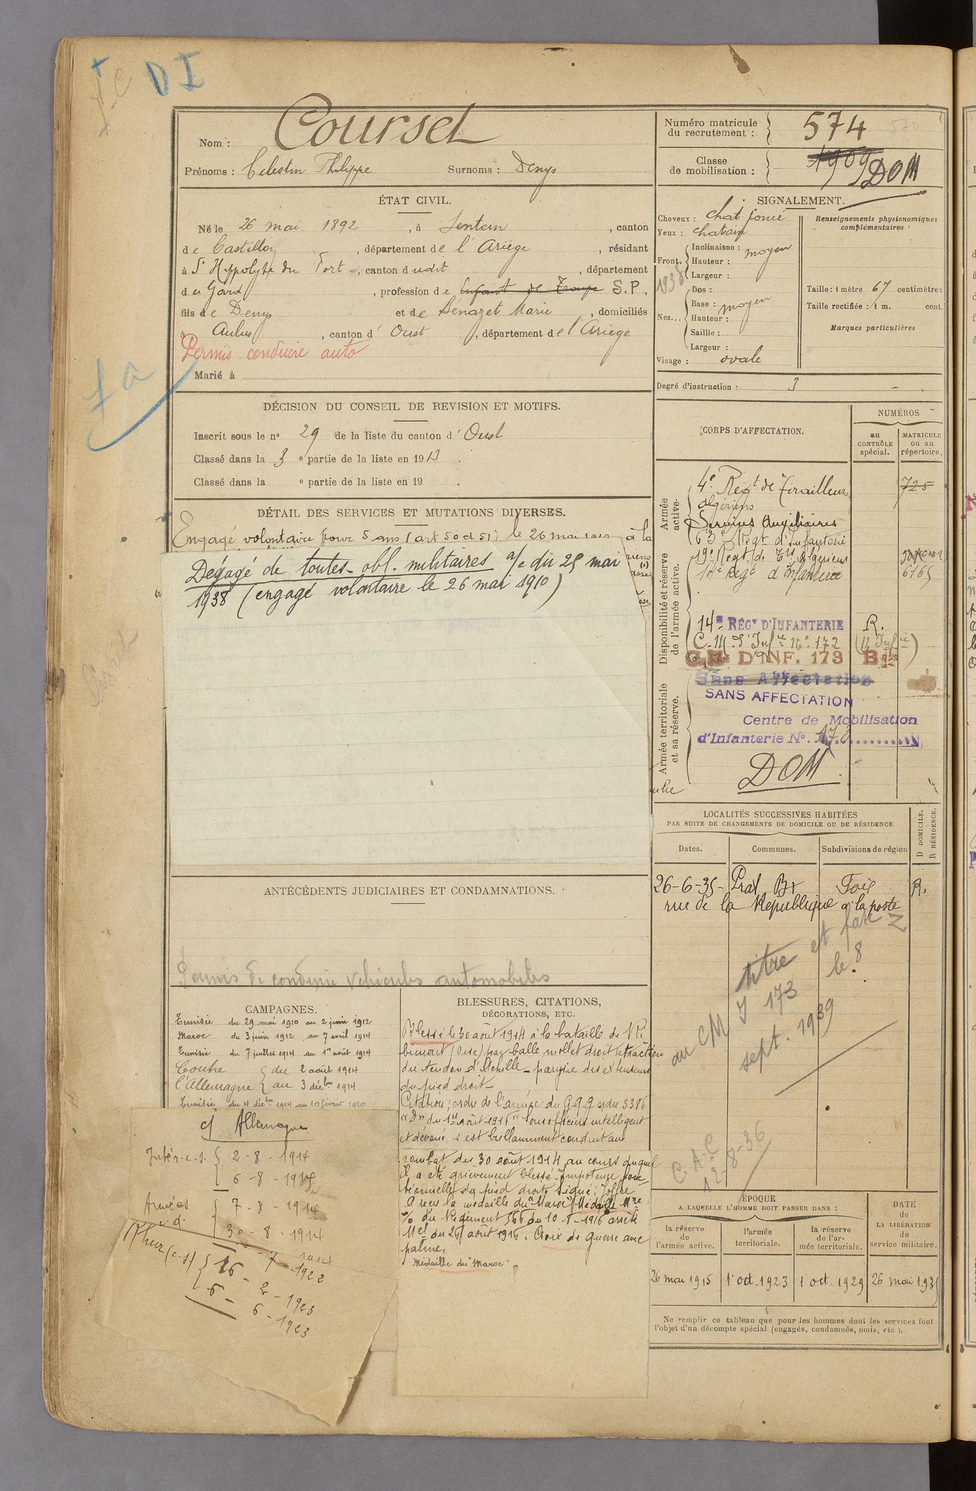 DI
Nom : Coursel
Prénoms : Célestin Philippe Surnoms : Denys
ÉTAT CIVIL.
Né le 26 mai 1892, à Sentein, canton
de Castillon, département de l'Ariège, résidant
à St Hippolyte du Fort, canton dudit, département
du Gard, profession de enfant de Troupe S.P.,
fils de Denys et de Sénazet Marie, domiciliés
à Aulus, canton d'Oust, département de l'Ariège
Permis conduire auto
Marié à
DÉCISION DU CONSEIL DE REVISION ET MOTIFS.
Inscrit sous le n° 29 de la liste du canton d'Oust
Classé dans la 3 e partie de la liste en 1913.
Classé dans la e partie de la liste en 19 .
DÉTAIL DES SERVICES ET MUTATIONS DIVERSES.
Engagé volontaire pour 5 ans (art 50 et 51) le 26 mai à la
Dégagé de toutes obl. militaires a/c du 25 mai
1938 (engagé volontaire le 26 mai 1910)
ANTÉCÉDENTS JUDICIAIRES ET CONDAMNATIONS.
Permis de conduire véhicules automobiles
CAMPAGNES.
Tunisie du 29 mai 1910 au 2 juin 1912
Maroc du 3 juin 1912 au 7 avril 1914
Tunisie du 7 juillet 1914 au 1er août 1914
Contre l'Allemagne du 2 août 1914 au 3 décbre 1914
Tunisie du 4 décbre 1914 au 10 février 1920
c/ Allemagne
Intér. c.s. 2-8-1914
6-8-1914
Armées 7-8-1914
30-8-1914
Rhur (c-s) 16-2-1923
5-6-1923
BLESSURES, CITATIONS,
DÉCORATIONS, ETC.
Blessé le 30 août 1914 à la bataille de
Ribémont (Oise) par balle mollet droit
du tendon d'Achille - paralysie des extenseurs
du pied droit.
Citation ordre de l'armée du G.Q.G. ordre 3376
"D" du 1er août 1916 "Sous officier intelligent
et dévoué s'est brillamment conduit au
combat du 30 août 1914 au cours duquel
il a été grièvement blessé. Impotence fonctionnelle
du pied droit. Signé : Joffre
A reçu la médaille du "Maroc" Médaille Mre
du 10-8-1916 arrêté
Mel du 26 août 1916. Croix de guerre avec
palme.
Médaille du "Maroc".
Numéro matricule
du recrutement : 574
Classe
de mobilisation : 1909 DOM
SIGNALEMENT.
Cheveux : chat foncé
Yeux : chatain
Front. Inclinaison : moyen
Hauteur :
Largeur :
1938
Nez... Dos :
Base : moyen
Hauteur :
Saillie :
Largeur :
Visage : ovale
Renseignements physionomiques
complémentaires :
Taille : 1 mètre 67 centimètres
Taille rectifiée : 1 m. cent.
Marques particulières
Degré d'instruction : 3
CORPS D'AFFECTATION.
NUMÉROS
au CONTRÔLE spécial.
MATRICULE ou au répertoire.
Armée active.
4e Régt de Tirailleurs 725
Algériens
Services Auxiliaires
Disponibilité et réserve de l'armée active.
63e Régt d'Infanterie
19e Régt de Tirs Algériens
14e Rég d'Infanterie 6165
14e RÉGt D'INFANTERIE R.
C.M. d'Infie N° 172
C.M. D'INF. 173
Armée territoriale et sa réserve.
Sans Affectation
SANS AFFECTATION
Centre de Mobilisation
d'Infanterie N° 173
DOM
LOCALITÉS SUCCESSIVES HABITÉES
PAR SUITE DE CHANGEMENTS DE DOMICILE OU DE RÉSIDENCE
Dates. Communes. Subdivisions de région D DOMICILE. R RÉSIDENCE.
26-6-35 - Prat Bx Foix R.
rue de la République à la poste
titre et fasc Z
au CM I 173 le 8
sept. 1939
C.A.C
12-8-36
ÉPOQUE
A LAQUELLE L'HOMME DOIT PASSER DANS :
la réserve de l'armée active.
l'armée territoriale.
la réserve de l'armée territoriale.
DATE de LA LIBÉRATION du service militaire.
26 mai 1915 1er oct. 1923 1 oct. 1929 26 mai 193
Ne remplir ce tableau que pour les hommes dont les services font
l'objet d'un décompte spécial (engagés, condamnés, omis, etc.).